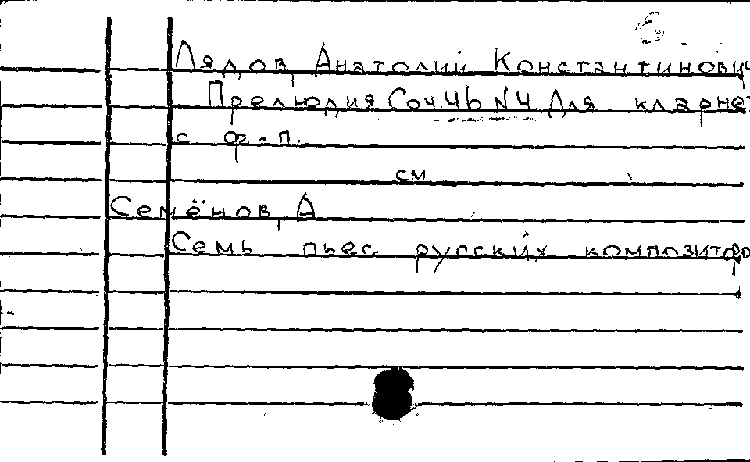 Лядов, Анатолий Константинович
Прелюдия Соч. 46 №4 Для кларнет
с ф-п.
см
Семёнов, А
Семь пьес русских композиторо